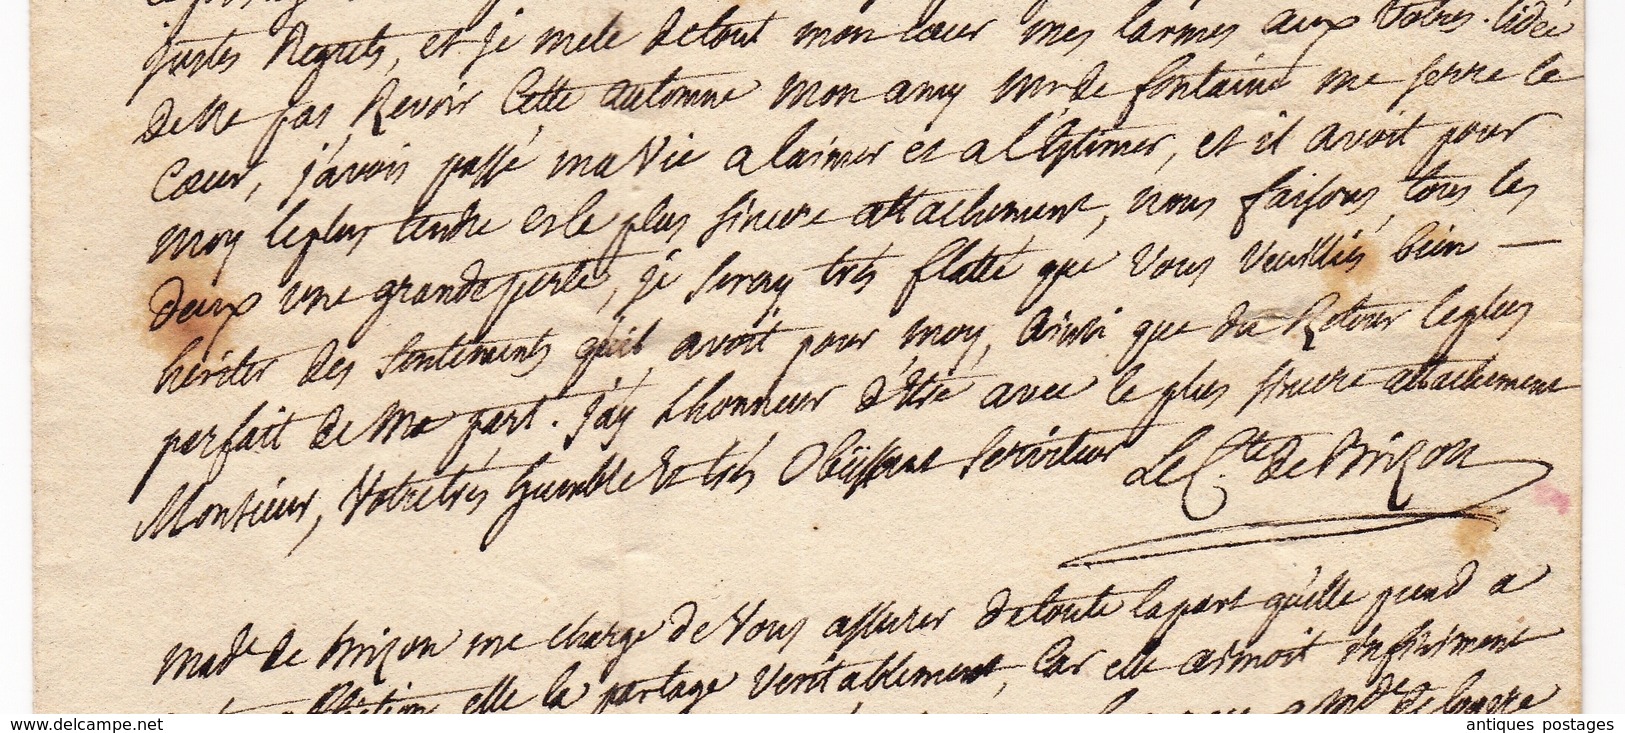 justes Regrets, et je mele detout mon cœur mes larmes aux Votres. lidée
de ne pas Revoir Cette automne mon amy Mr. de fontaine me serre le
cœur, j'avois passé ma Vie a laimer et a l'Estimer, et il avoit pour
moy leplus tendre et le plus sincere attachement, nous faisons, tous les
deux une grande perte, je seray trés flatté que Vous Veuilliés bien —
heriter des sentiments quil avoit pour moy, ainsi que du Retour leplus
parfait de ma part. j'ay Lhonneur d'étre avec le plus sincere attachement
Monsieur, Votre trés humble Et trés Obeissant serviteur Le Cte de Brizon
Made de Brizon me charge de Vous assurer detoute lapart qu'elle prend a
affliction, elle la partage Veritablement, Car elle aimoit infiniment
Mde de
delcampe.net
antiques postages